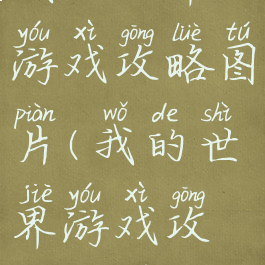 yóu xì gōng lüè tú
游戏攻略图
piàn wǒ de shì
片(我的世
jiè yóu xì gōng
界游戏攻